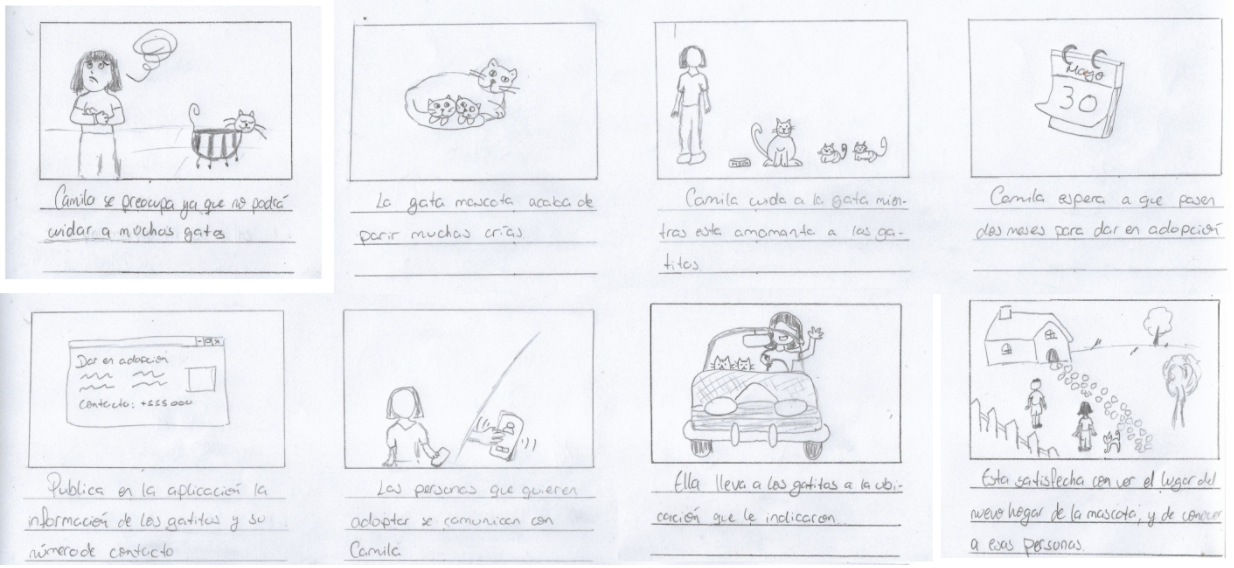 Camila se preocupa ya que no podrá
cuidar a muchos gatos
La gata mascota acaba de
parir muchas crías
Camila cuida a la gata mien-
tras esta amamanta a los ga-
titos
Mayo
30
Camila espera a que pasen
dos meses para dar en adopción
Dar en adopción
Contacto: +555000
Publica en la aplicación la
información de los gatitos y su
número de contacto
Las personas que quieren
adoptar se comunican con
Camila
Ella lleva a los gatitos a la ubi-
cación que le indicaron
Esta satisfecha con ver el lugar del
nuevo hogar de la mascota, y de conocer
a esas personas.